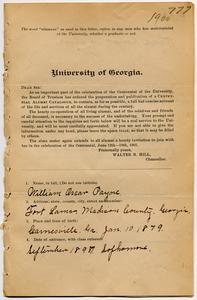 777
1900
The word "alumnus" as used in this letter, refers to any man who has matriculated
at the University, whether a graduate or not.
University of Georgia.
DEAR SIR:
As an important part of the celebration of the Centennial of the University,
the Board of Trustees has ordered the preparation and publication of a CENTEN-
NIAL ALUMNI CATALOGUE, to contain, as far as possible, a full but concise account
of the life and services of all the alumni during the century.
The hearty co-operation of all living alumni, and of the relatives and friends
of all deceased, is necessary to the success of the undertaking. Your prompt and
careful attention to the inquiries set forth below will be a real service to the Univer-
sity, and will be most cordially appreciated. If you are not able to give the
information under any head, please leave the space blank, so that it may be filled
by others.
The alumni under extends to all alumni a hearty invitation to join with
her in the celebration of the Centennial, June 12th-19th, 1901.
Fraternally yours,
WALTER B. HILL,
Chancellor.
1. Name, in full, (Do not use initials).
William Oscar Payne.
2. Address; state, county, city, street and number.
Fort Lamar, Madison County, Georgia.
3. Place and time of birth:
Carnesville, Ga. Jan. 10, 1879.
4. Date of entrance, with class entered:
September 1897 Sophomore.